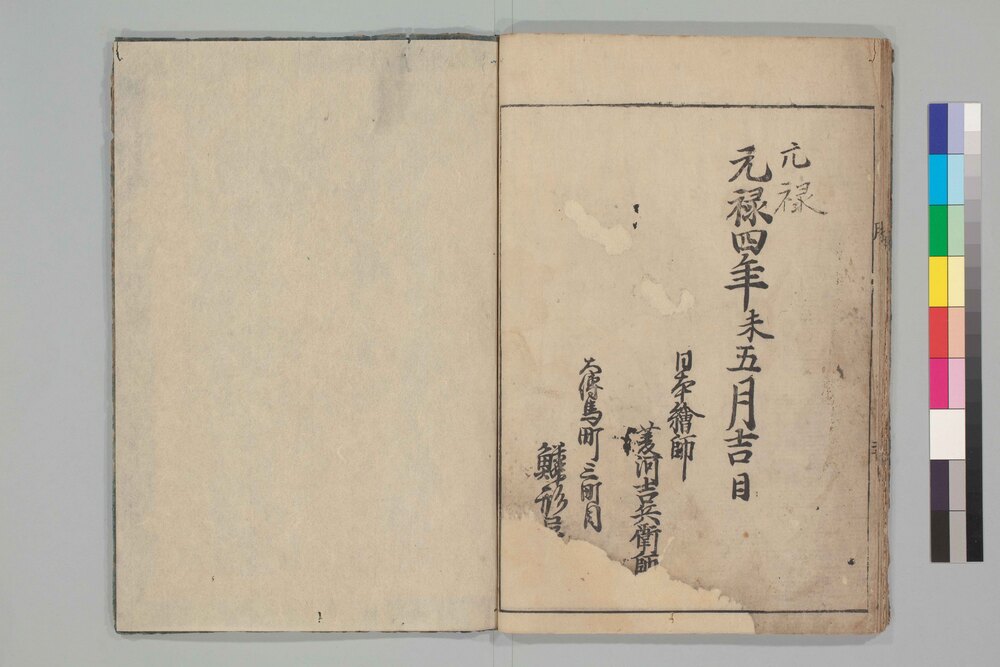 元禄
元禄四年未五月吉日
日本繪師
菱河吉兵衛師
大傳馬町三町目
鱗形屋